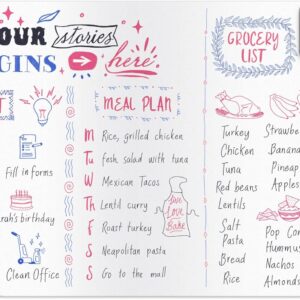 OUR stories
GINS here
Fill in forms
rah's birthday
Clean Office
MEAL PLAN
M Rice, grilled chicken
Tu fesh salad with tuna
W Mexican Tacos
Th Lentil curry
F Roast turkey
S Neapolitan pasta
S Go to the mall
Love
Bake
GROCERY
LIST
Turkey
Chicken
Tuna
Red beans
Lentils
Salt
Pasta
Bread
Rice
Strawbe
Banana
Pineap
Apples
Pop Cor
Hummus
Nachos
Almonds